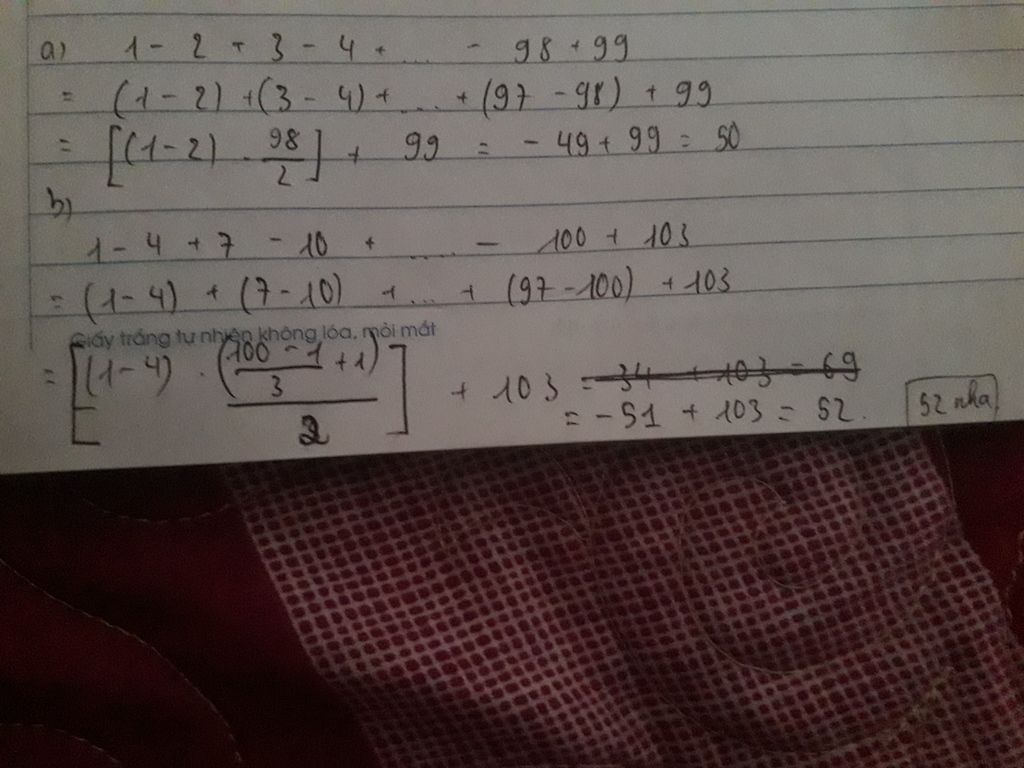 a) 1 - 2 + 3 - 4 + .... - 98 + 99
= (1 - 2) + (3 - 4) + .... + (97 - 98) + 99
= [(1 - 2) . 98/2] + 99 = - 49 + 99 = 50
b)
1 - 4 + 7 - 10 + ..... - 100 + 103
= (1 - 4) + (7 - 10) + ... + (97 - 100) + 103
Giấy trắng tự nhiên không lóa, mỏi mắt
= [(1 - 4) . ((100 - 1)/3 + 1)/2] + 103 = - 34 + 103 = 69
= - 51 + 103 = 52. 52 nha